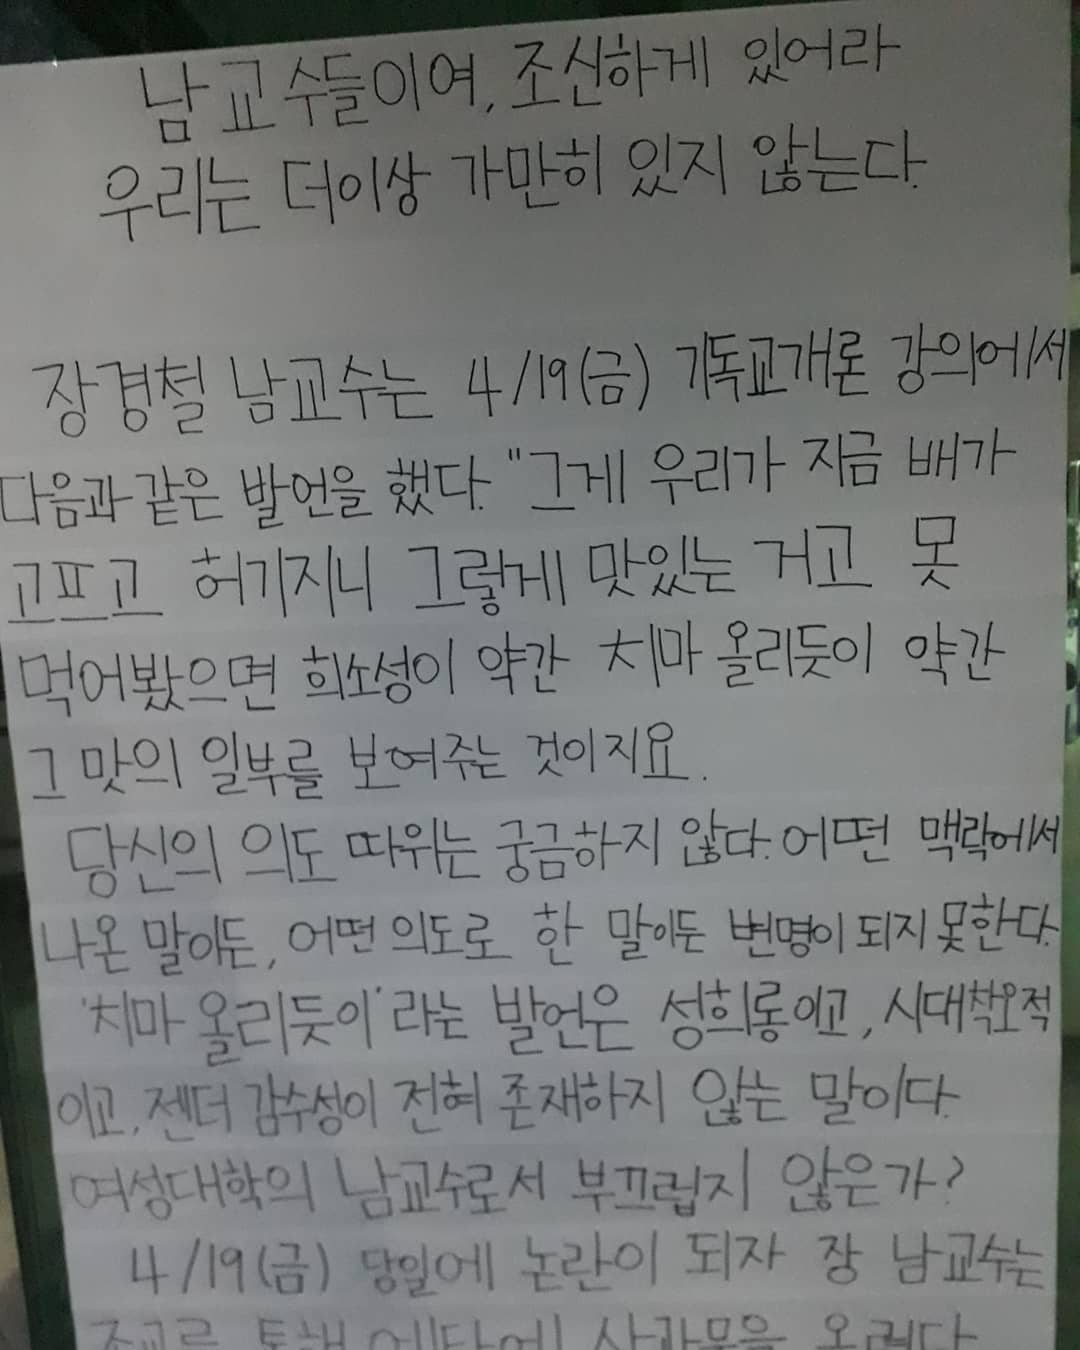 남교수들이여, 조신하게 있어라
우리는 더이상 가만히 있지 않는다.
장경철 남교수는 4/19(금) 기독교개론 강의에서
다음과 같은 발언을 했다. "그게 우리가 지금 배가
고프고 허기지니 그렇게 맛있는 거고 못
먹어봤으면 희소성이 약간 치마 올리듯이 약간
그 맛의 일부를 보여주는 것이지요.
당신의 의도 따위는 궁금하지 않다. 어떤 맥락에서
나온 말이든, 어떤 의도로 한 말이든 변명이 되지 못한다.
'치마 올리듯이'라는 발언은 성희롱이고, 시대착오적
이고, 젠더 감수성이 전혀 존재하지 않는 말이다.
여성대학의 남교수로서 부끄럽지 않은가?
4/19(금) 당일에 논란이 되자 장 남교수는
조교를 통해 에타에 사과문을 올렸다.